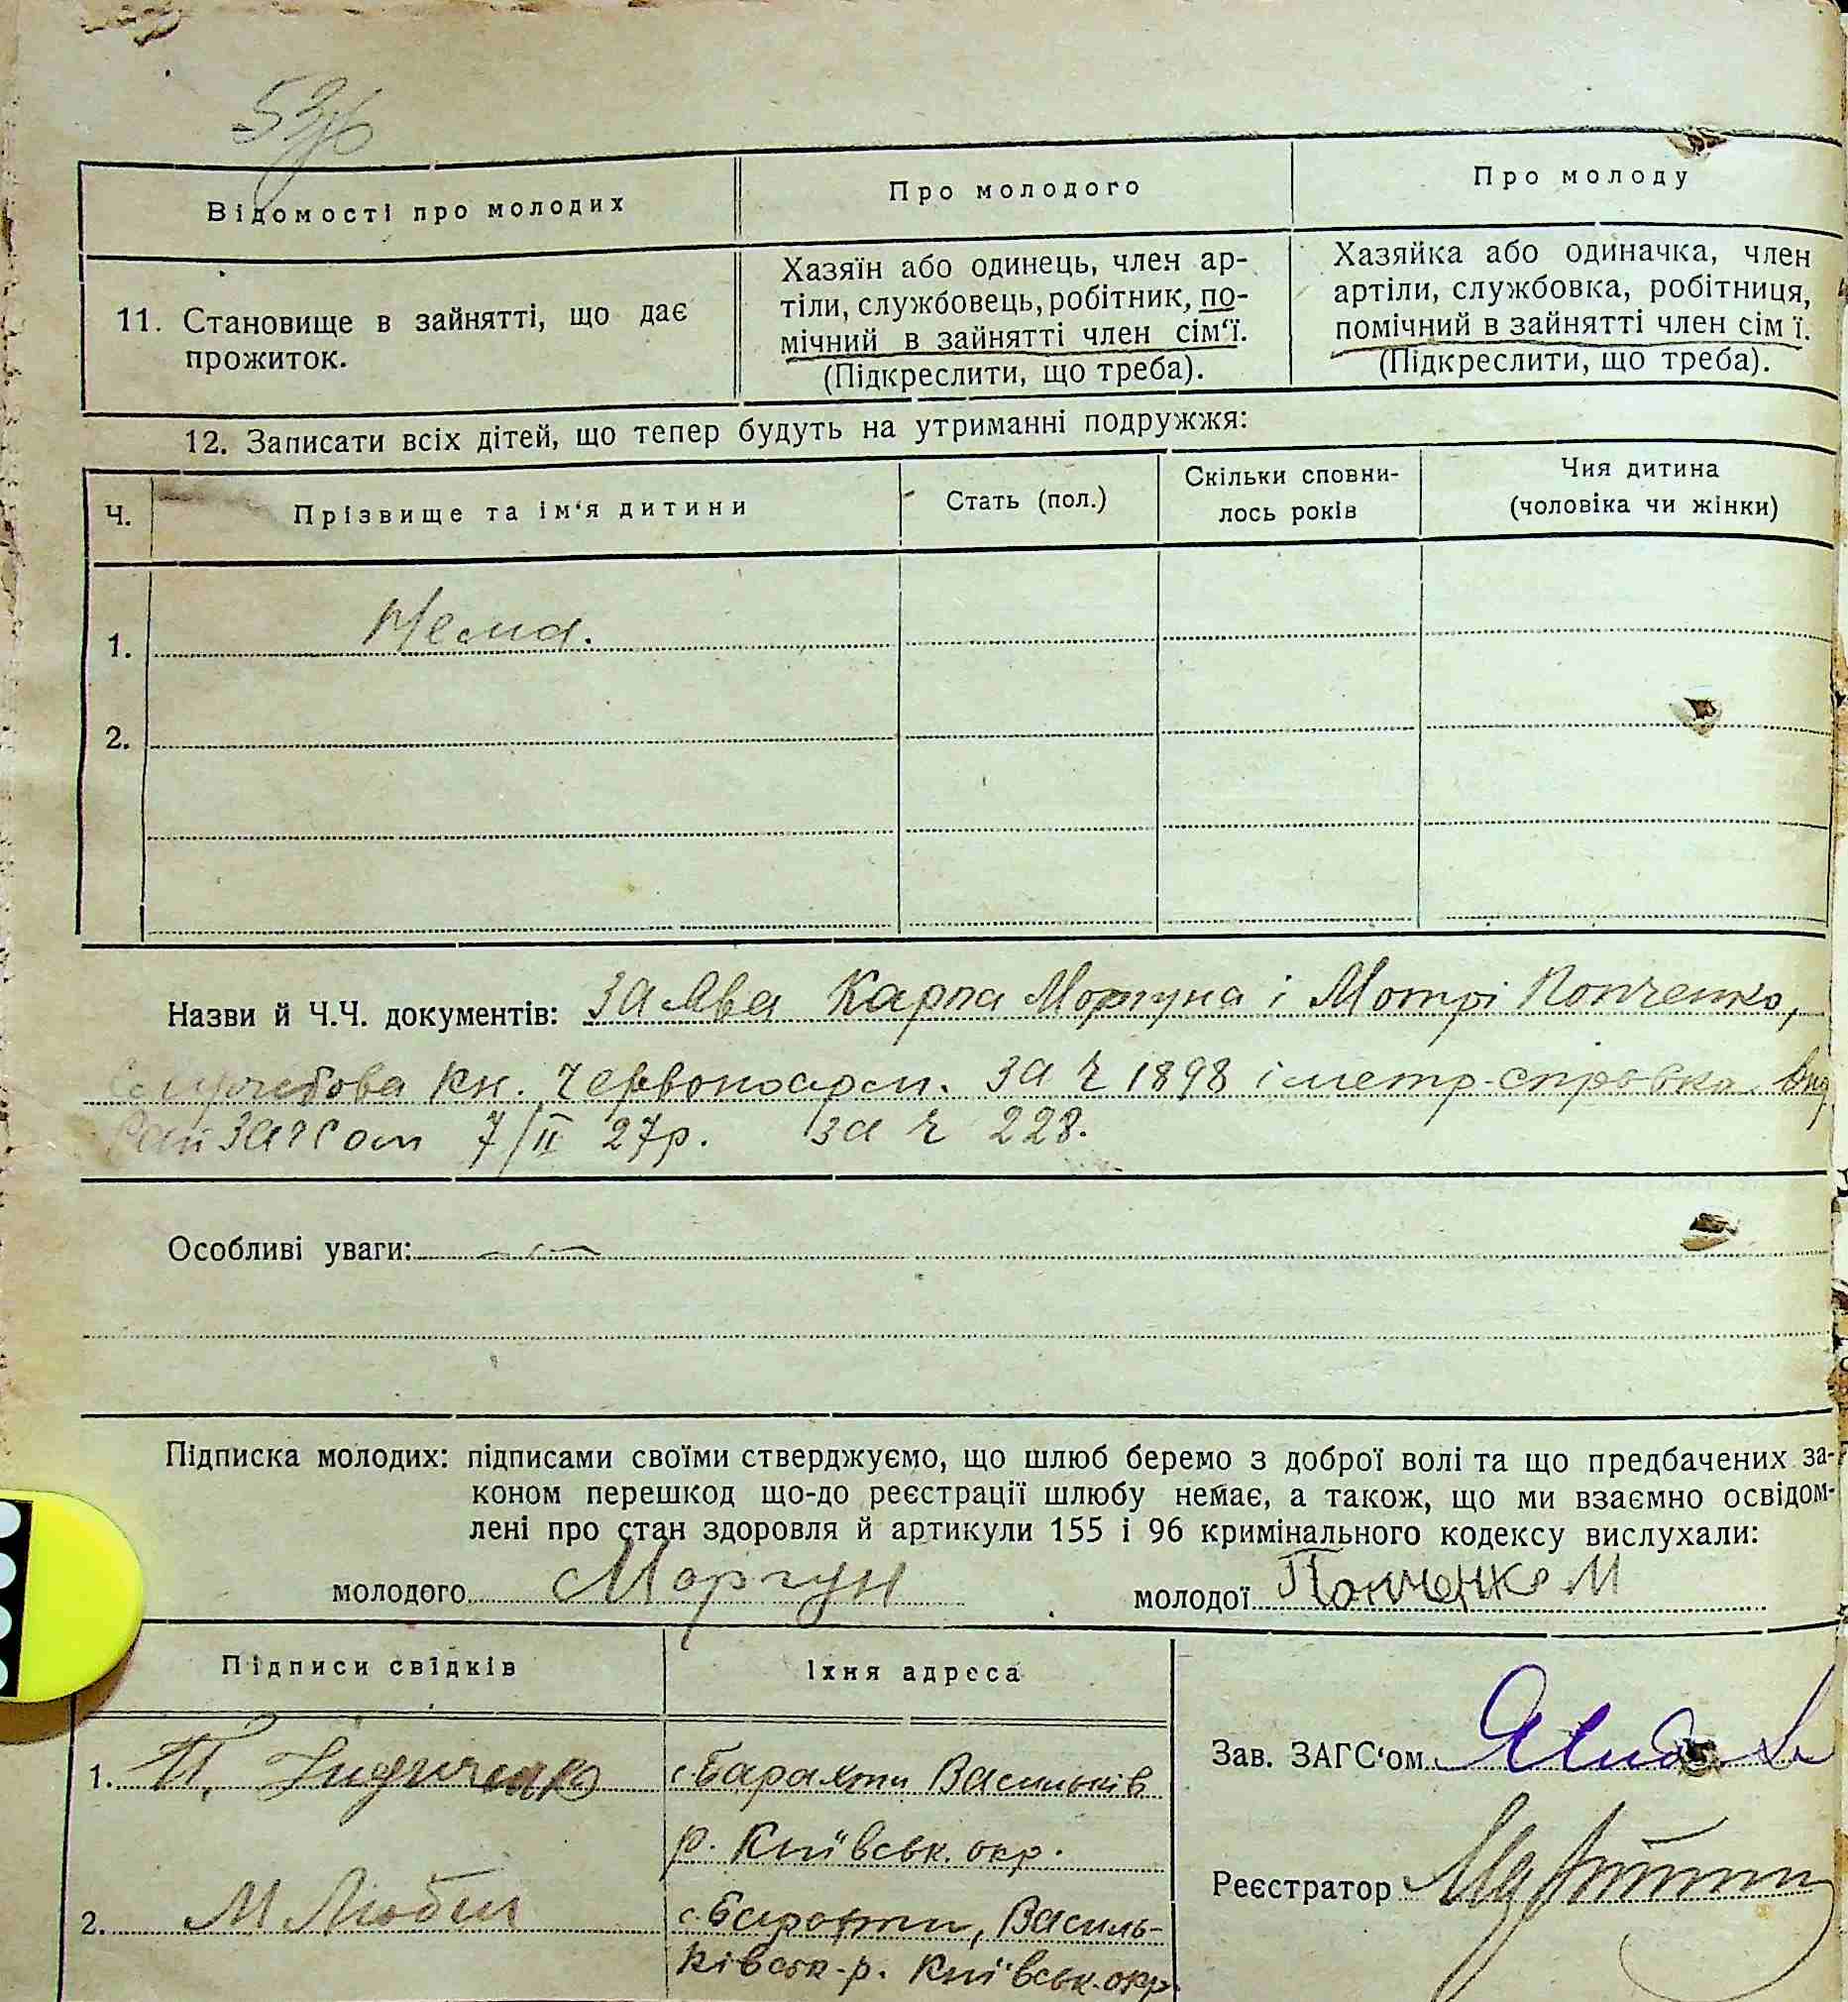 53
Відомості про молодих
Про молодого
Про молоду
11. Становище в зайнятті, що дає
прожиток.
Хазяїн або одинець, член ар-
тіли, службовець, робітник, по-
мічний в зайнятті член сім'ї.
(Підкреслити, що треба).
Хазяйка або одиначка, член
артіли, службовка, робітниця,
помічний в зайнятті член сім ї.
(Підкреслити, що треба).
12. Записати всіх дітей, що тепер будуть на утриманні подружжя:
Ч.
Прізвище та ім'я дитини
Стать (пол.)
Скільки сповни-
лось років
Чия дитина
(чоловіка чи жінки)
1. Нема.
2.
Назви й Ч.Ч. документів: заява Карпа Моргуна і Мотрі Попченко,
службова кн. Червоноарм. за ч 1898 і метр. справка вид
РайЗагсом 7/II 27р. за ч 228.
Особливі уваги:
Підписка молодих: підписами своїми стверджуємо, що шлюб беремо з доброї волі та що предбачених за-
коном перешкод що-до реєстрації шлюбу немає, а також, що ми взаємно освідом-
лені про стан здоровля й артикули 155 і 96 кримінального кодексу вислухали:
молодого Моргун молодої Попченко М
Підписи свідків
Їхня адреса
1. с. Барахти Васильків
р. Київськ. окр.
2. М Любич
с. Барахти, Василь-
ківськ. р. Київськ. окр.
Зав. ЗАГС'ом
Реєстратор